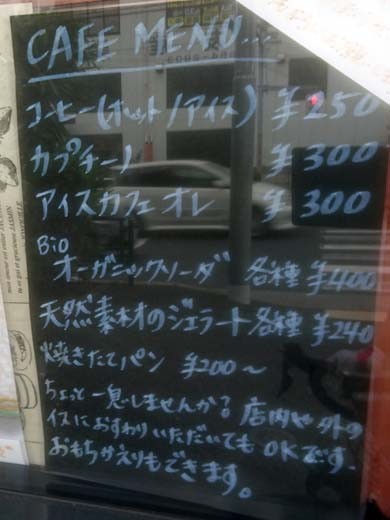 CAFE MENU...
コーヒー(ホット/アイス) ¥250
カプチーノ ¥300
アイスカフェオレ ¥300
Bio
オーガニックソーダ 各種 ¥400
天然素材のジェラート各種 ¥240
焼きたてパン ¥200〜
ちょっと一息しませんか?店内や外の
イスにおすわりいただいてもOKです.
おもちかえりもできます。